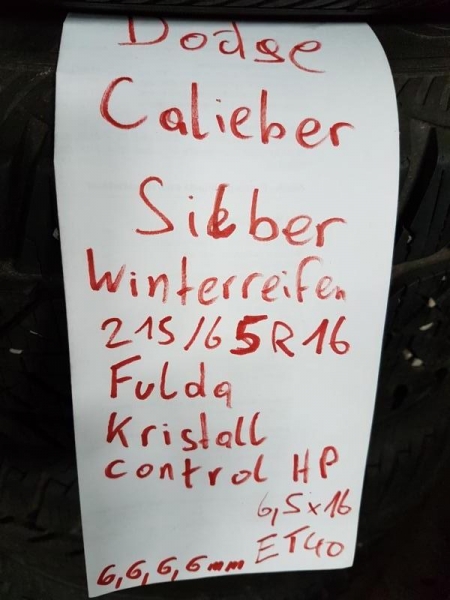 Dodge
Calieber
Silber
Winterreifen
215/65R16
Fulda
Kristall
control HP
6,5x16
ET40
6,6,6,6mm